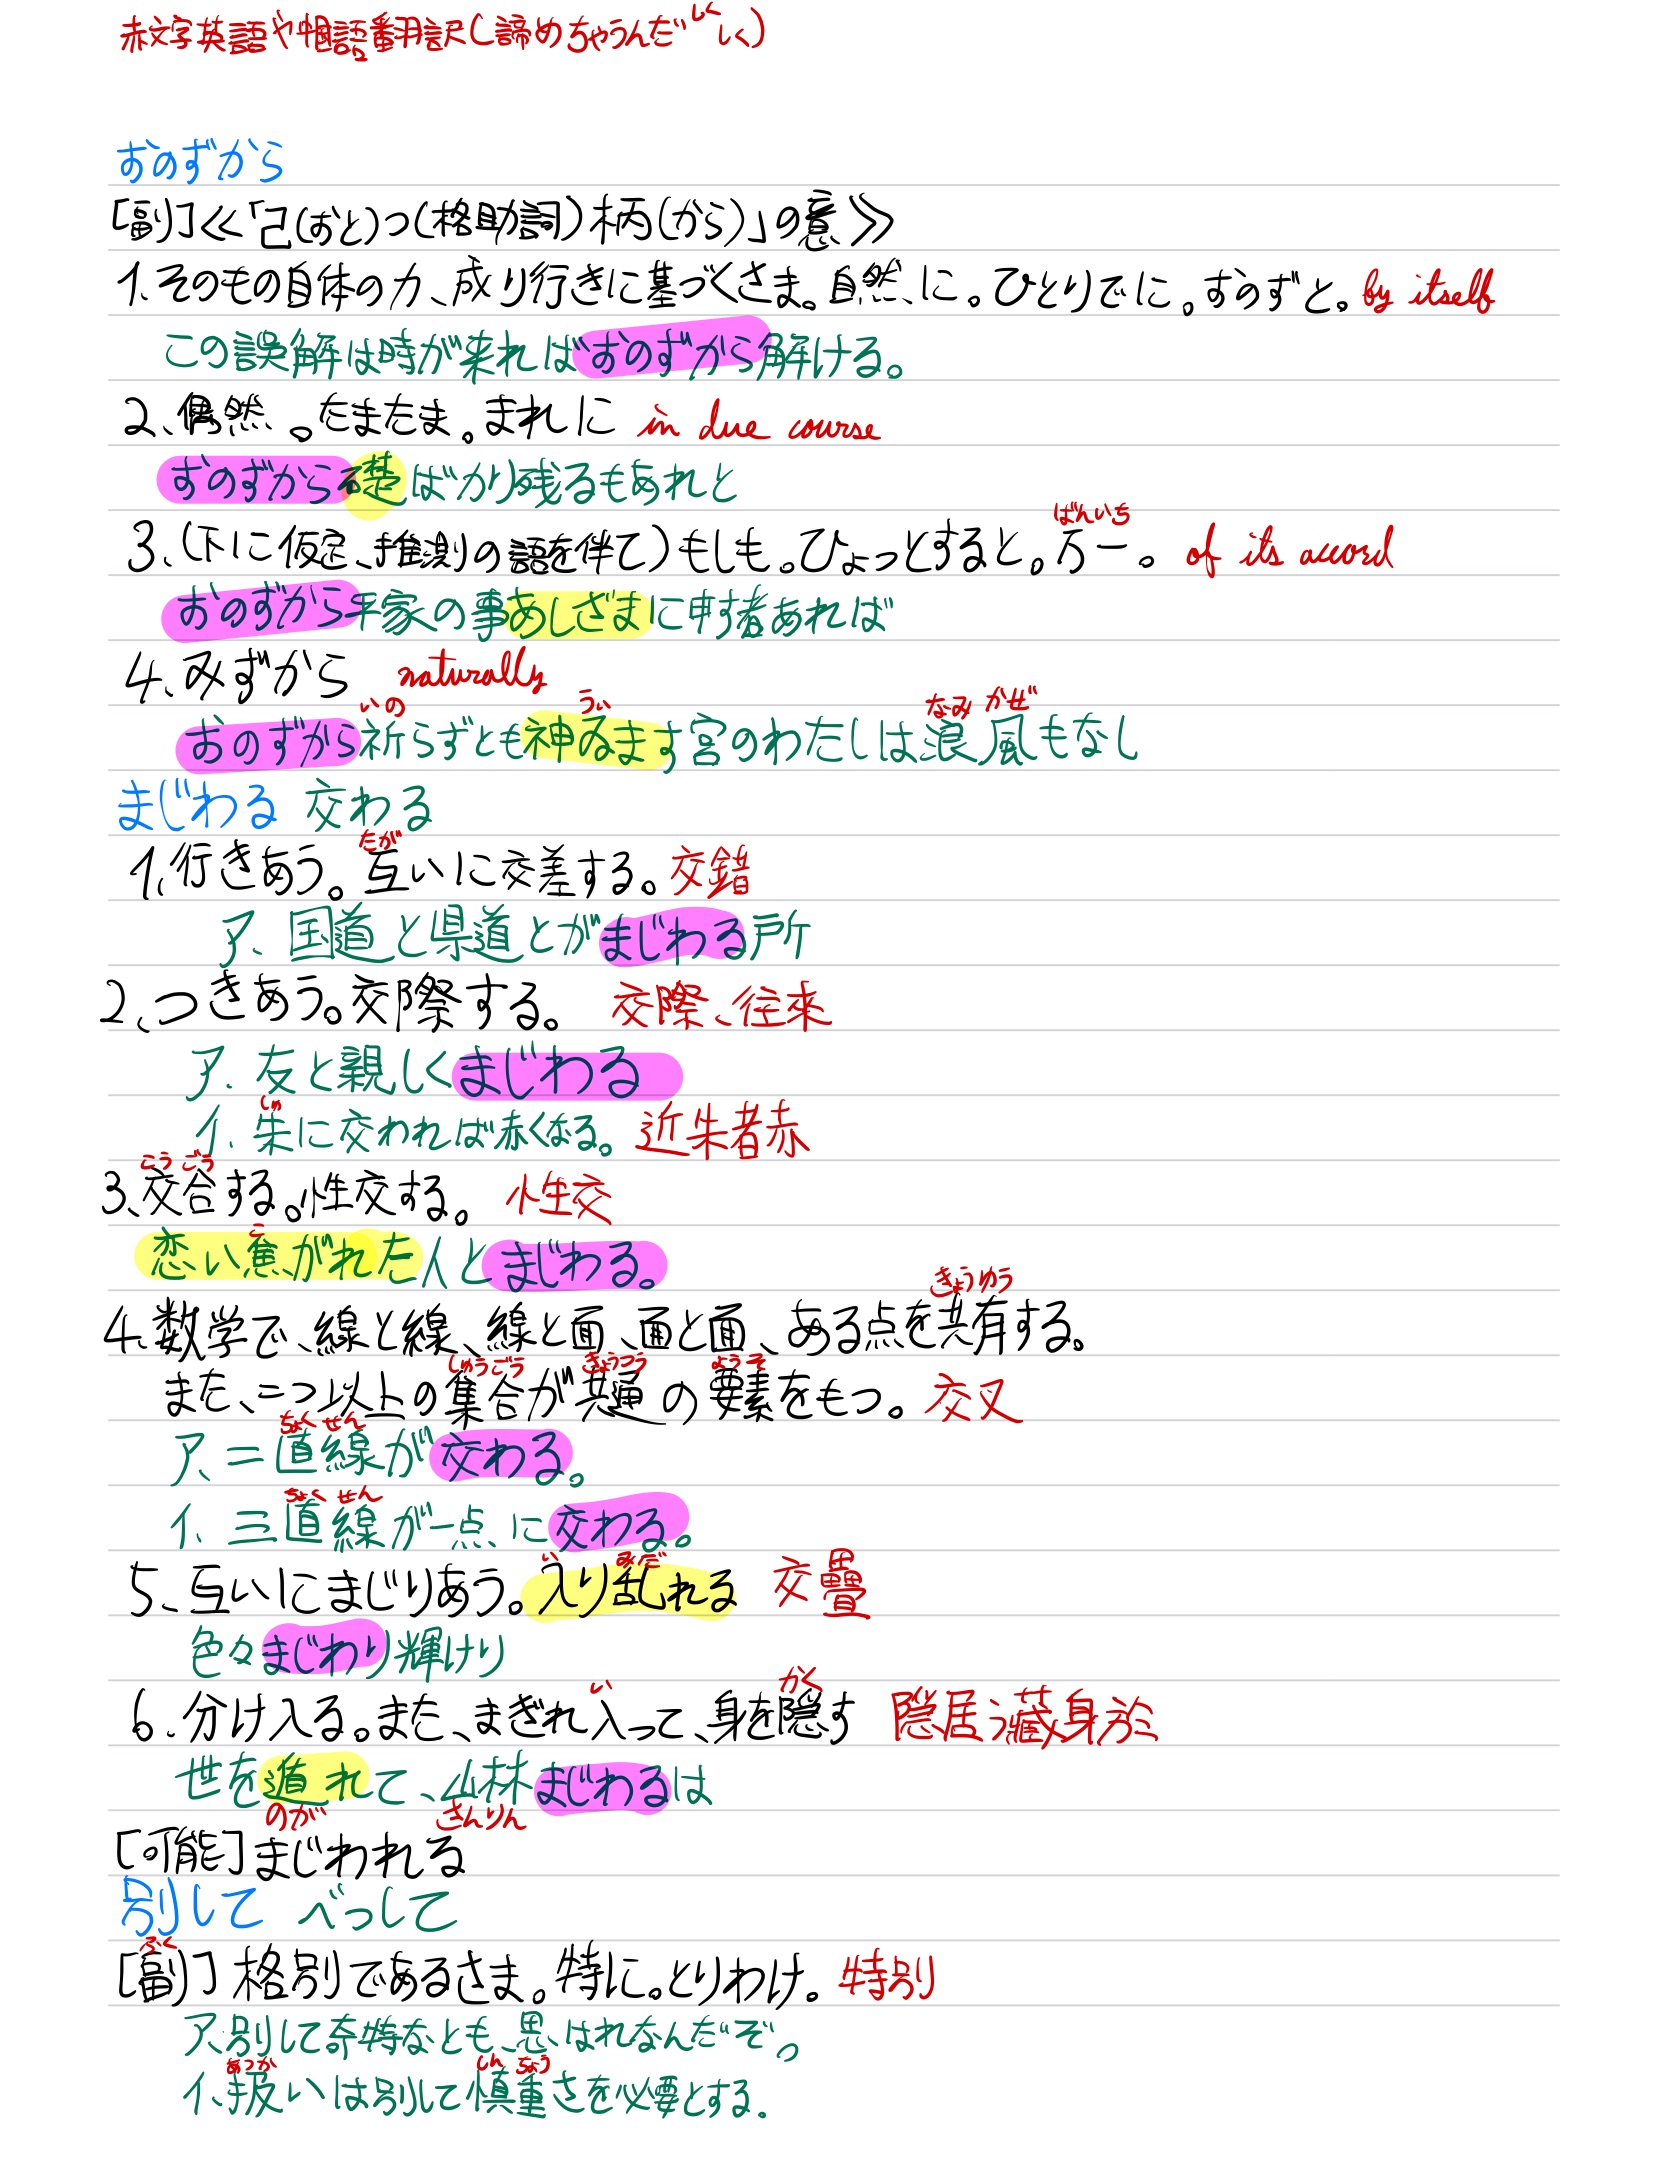 赤文字英語や中国語翻訳(諦めちゃうんだ しく しく)
おのずから
[副]≪「己(おと)つ(格助詞)柄(から)」の意≫
1、そのもの自体の力、成り行きに基づくさま。自然に。ひとりでに。おのずと。by itself
この誤解は時が来ればおのずから解ける。
2、偶然。たまたま。まれに in due course
おのずから礎ばかり残るもあれと
ばんいち
3、(下に仮定、推測の語を伴て)もしも。ひょっとすると。万一。 of its accord
おのずから平家の事あしざまに申す者あれば
4、みずから naturally
いの うぃ なみ かぜ
おのずから祈らずとも神ゐます宮のわたしは浪風もなし
まじわる 交わる
たが
1、行きあう。互いに交差する。交錯
ア、国道と県道とがまじわる所
2、つきあう。交際する。 交際、往來
ア、友と親しくまじわる
しゅ
イ、朱に交われば赤くなる。近朱者赤
こうごう
3、交合する。性交する。 性交
こ
恋い焦がれた人とまじわる。
きょうゆう
4、数学で、線と線、線と面、面と面、ある点を共有する。
しゅうごう きょうつう ようそ
また、二つ以上の集合が共通の要素をもつ。交叉
ちょくせん
ア、二直線が交わる。
ちょくせん
イ、三直線が一点に交わる。
い みだ
5、互いにまじりあう。入り乱れる 交疊
色々まじわり輝けり
い かく
6、分け入る。また、まぎれ入って、身を隠す 隠居、藏身於
世を遁れて、山林まじわるは
のが さんりん
[可能]まじわれる
別して べっして
ふく
[副]格別であるさま。特に。とりわけ。特別
ア、別して奇特なとも、思はれなんだぞ。
あつか しんちょう
イ、扱いは別して慎重さを必要とする。